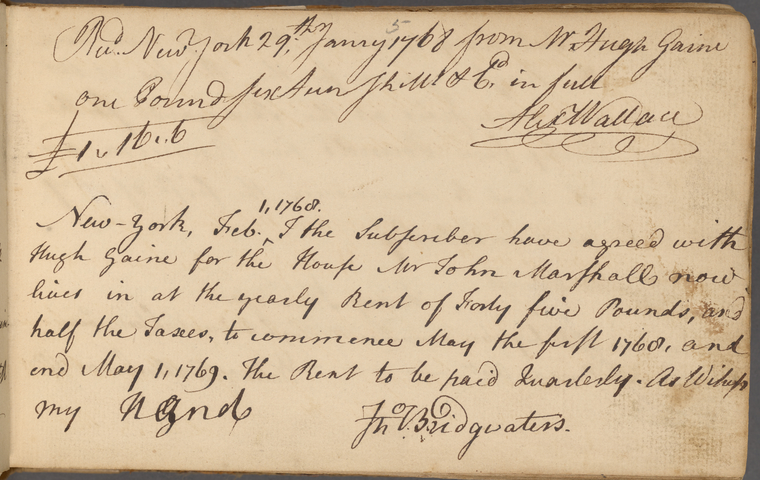 Recd. New York 29th Janry 1768 from Mr Hugh Gaine
one Pound sixteen shills. & 6d in full
£1,,16,,6 Alexr Wallace
5
New-York, Feb. 1, 1768. I the Subscriber have agreed with
Hugh Gaine for the House Mr John Marshall now
lives in at the yearly Rent of Forty five Pounds, and
half the Taxes, to commence May the first 1768, and
end May 1, 1769. The Rent to be paid Quarterly. As Witness
my Hand Jno. Bridgwaters.